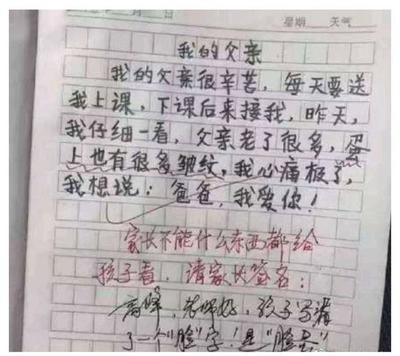 日 星期 天气
我的父亲
我的父亲很辛苦，每天要送
我上课，下课后来接我，昨天，
我仔细一看，父亲老了很多，蛋
上也有很多皱纹，我心痛极了，
我想说：爸爸，我爱你！
家长不能什么东西都给
孩子看，请家长签名：
老师好，孩子写漏
了一个"脸"字！是"脸蛋"